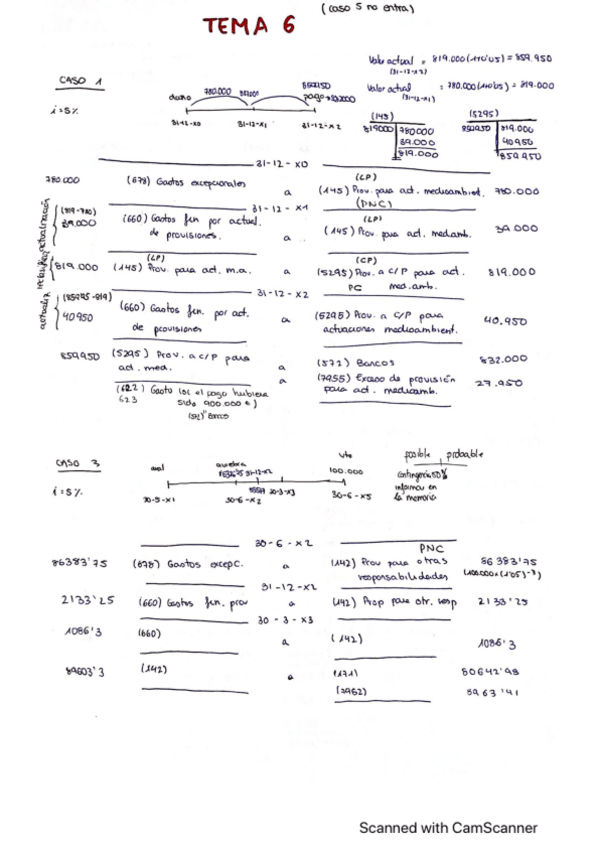 (caso 5 no entra)
TEMA 6
Valor actual = 819.000 (1+0'05) = 859.950
(31-12-X2)
Valor actual = 780.000 (1+0'05) = 819.000
(31-12-X1)
CASO 1
i=5%
daño 780.000 pago
31-12-X0 31-12-X1 31-12-X2
(145) (5295)
819000 780000 859950 819.000
39.000 40950
819.000 859950
31-12-X0
(LP)
780.000 (678) Gastos excepcionales a (145) Prov. para act. medioambient. 780.000
(PNC)
31-12-X1
(819-780) (LP)
39.000 (660) Gastos fin por actual. de provisiones. a (145) Prov. para act. medamb. 39.000
reclasific. actualización
(LP) (CP)
819.000 (145) Prov. para act. m.a. a (5295) Prov. a C/P para act. 819.000
PC med.amb.
31-12-X2
(859'95-819)
40950 (660) Gastos fin. por act. de provisiones a (5295) Prov. a C/P para actuaciones medioambient. 40.950
859950 (5295) Prov. a C/P para act. med. a (572) Bancos 832.000
a (7955) Exceso de provisión para act. medioamb. 27.950
(622) Gasto (si el pago hubiera
623 sido 900.000 €)
(572) Banco
CASO 3
i=5%
vto
100.000
30-6-X2 31-12-X2 30-3-X3 30-6-X5
posible probable
contingencia 50%
informar en
la memoria
30-6-X2
PNC
86383'75 (678) Gastos excepc. a (142) Prov para otras responsabilidades 86383'75
(100.000 x (1'05)^-3)
31-12-X2
2133'25 (660) Gastos fin. prov a (142) Prop para otr. resp 2133'25
30-3-X3
1086'3 (660) a (142) 1086'3
89603'3 (142) a (171) 80642'98
8963'41
Scanned with CamScanner